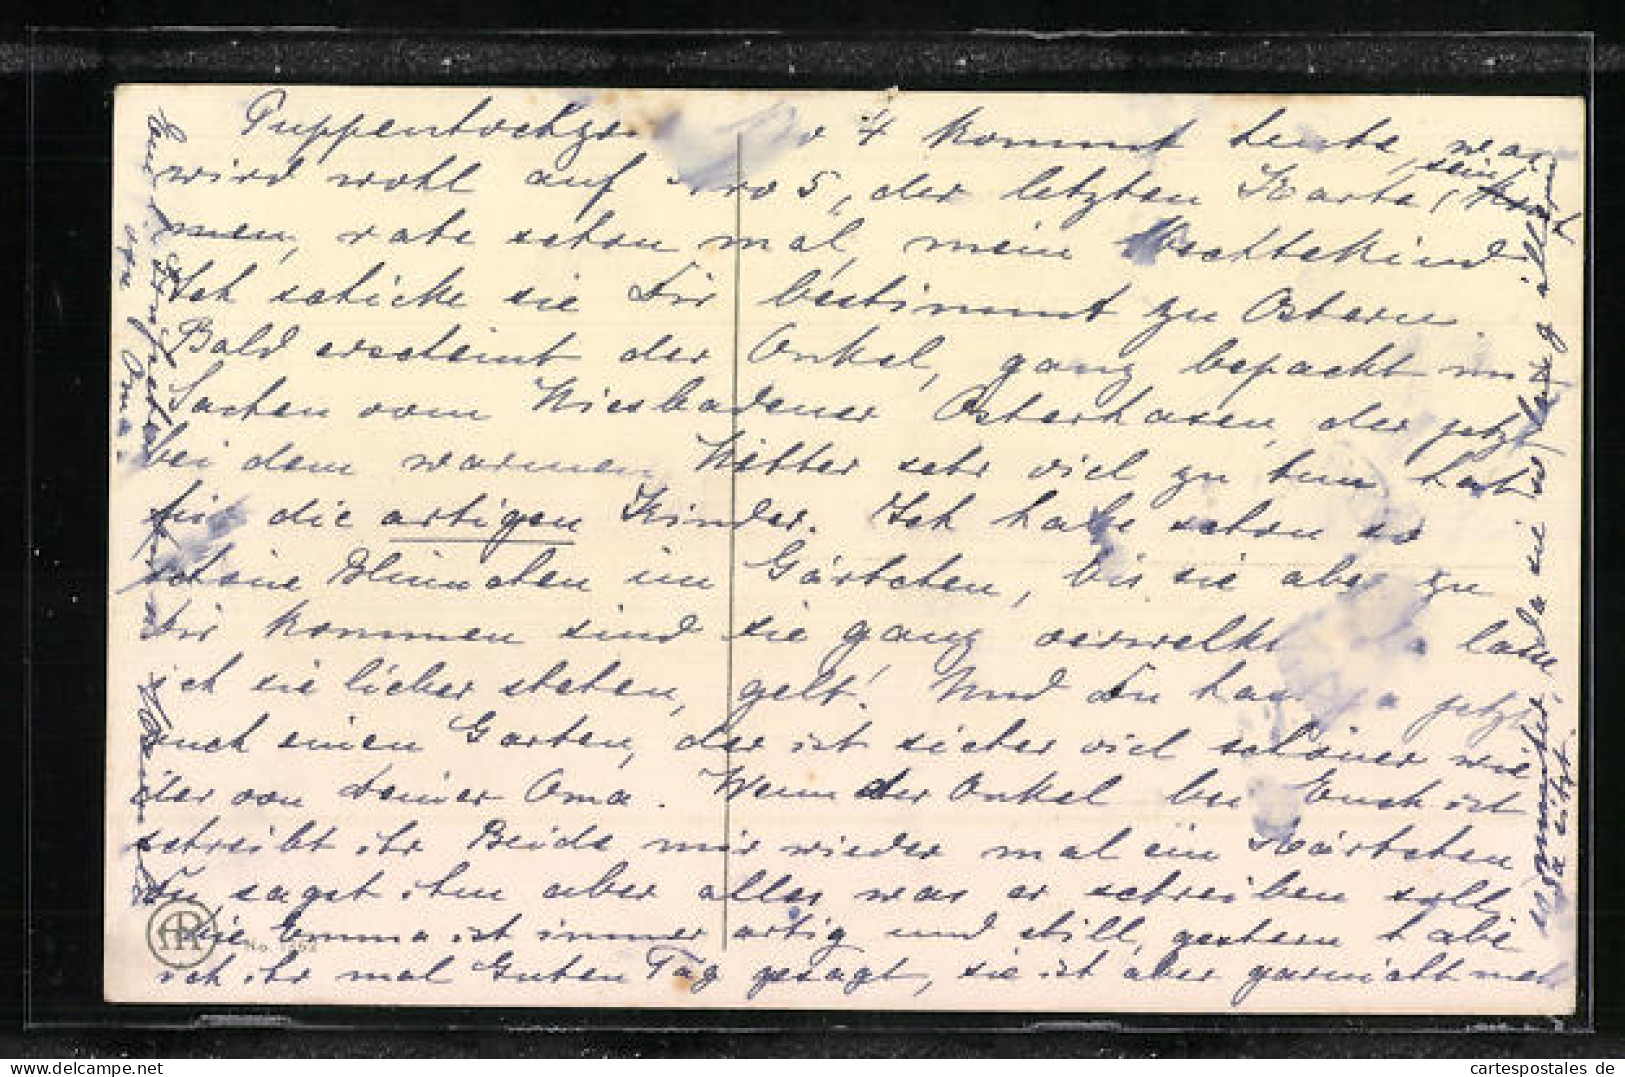 Puppenhochzei No 4 kommt heute, was
wird wohl auf No 5, der letzten Karte, sein
men, rate schon mal, mein Wichtekind
Ich schicke sie Dir bestimmt zu Ostern.
Bald erscheint der Onkel, ganz bepackt mit
Sachen vom Wiesbadener Osterhasen, der jetzt
bei dem warmen Wetter sehr viel zu tun hat
für die artigen Kinder. Ich habe schon so
schöne Blümchen im Gärtchen, bis sie aber zu
Dir kommen sind sie ganz verwelkt lasse
ich sie lieber stehen, gelt! Und Du hast ja jetzt
auch einen Garten, der ist sicher viel schöner wie
der von Deiner Oma. Wenn der Onkel bei Euch ist
schreibt ihr Beide mir wieder mal ein Kärtchen,
Du sagst ihm aber alles, was er schreiben soll.
Die Emma ist immer artig und still, gestern habe
ich ihr mal Guten Tag gesagt, sie ist aber garnicht mehr
munter, da sie so lang allein
da sitzt.
von Oma.
AR
No.
cartespostales de